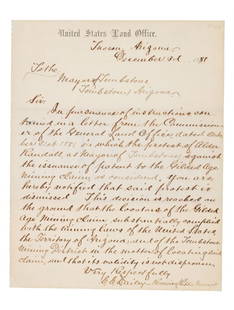 United States Land Office.
Tucson Arizona
December 3d 1881
To the
Mayor of Tombstone
Tombstone Arizona
Sir
In pursuance of instructions con
tained in a letter from the Commission
er of the General Land Office, dated
21st 1881 in which the protest of Alder
Randall as Mayor of Tombstone against
the issuance of patent to the Gilded Age
Mining Claim is considered, You are
hereby notified that said protest is
dismissed. This decision is reached on
the ground that the locators of the Gilded
Age Mining Claim substantially complied
with the mining laws of the United States
the Territory of Arizona, and of the Tombstone
Mining District in the matter of locating said
claim, and that its validity is not disproven.
Very Respectfully